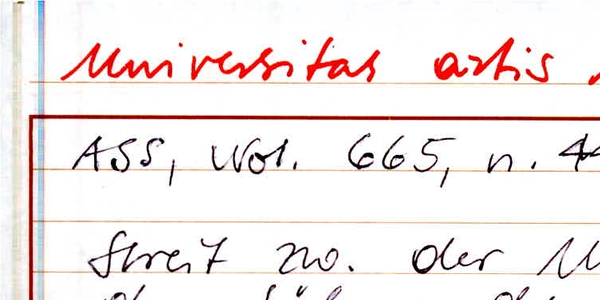 Universitas artis
ASS, Not. 665, n. 44
Streit zw. der